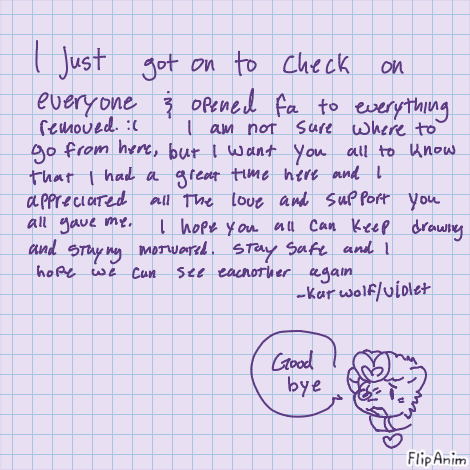 I Just got on to check on
everyone & opened fa to everything
removed. :( I am not sure where to
go from here, but I want you all to know
that I had a great time here and I
appreciated all the love and support you
all gave me. I hope you all can keep drawing
and staying motivated. stay safe and I
hope we can see eachother again
-Kar wolf/violet
Good
bye
FlipAnim